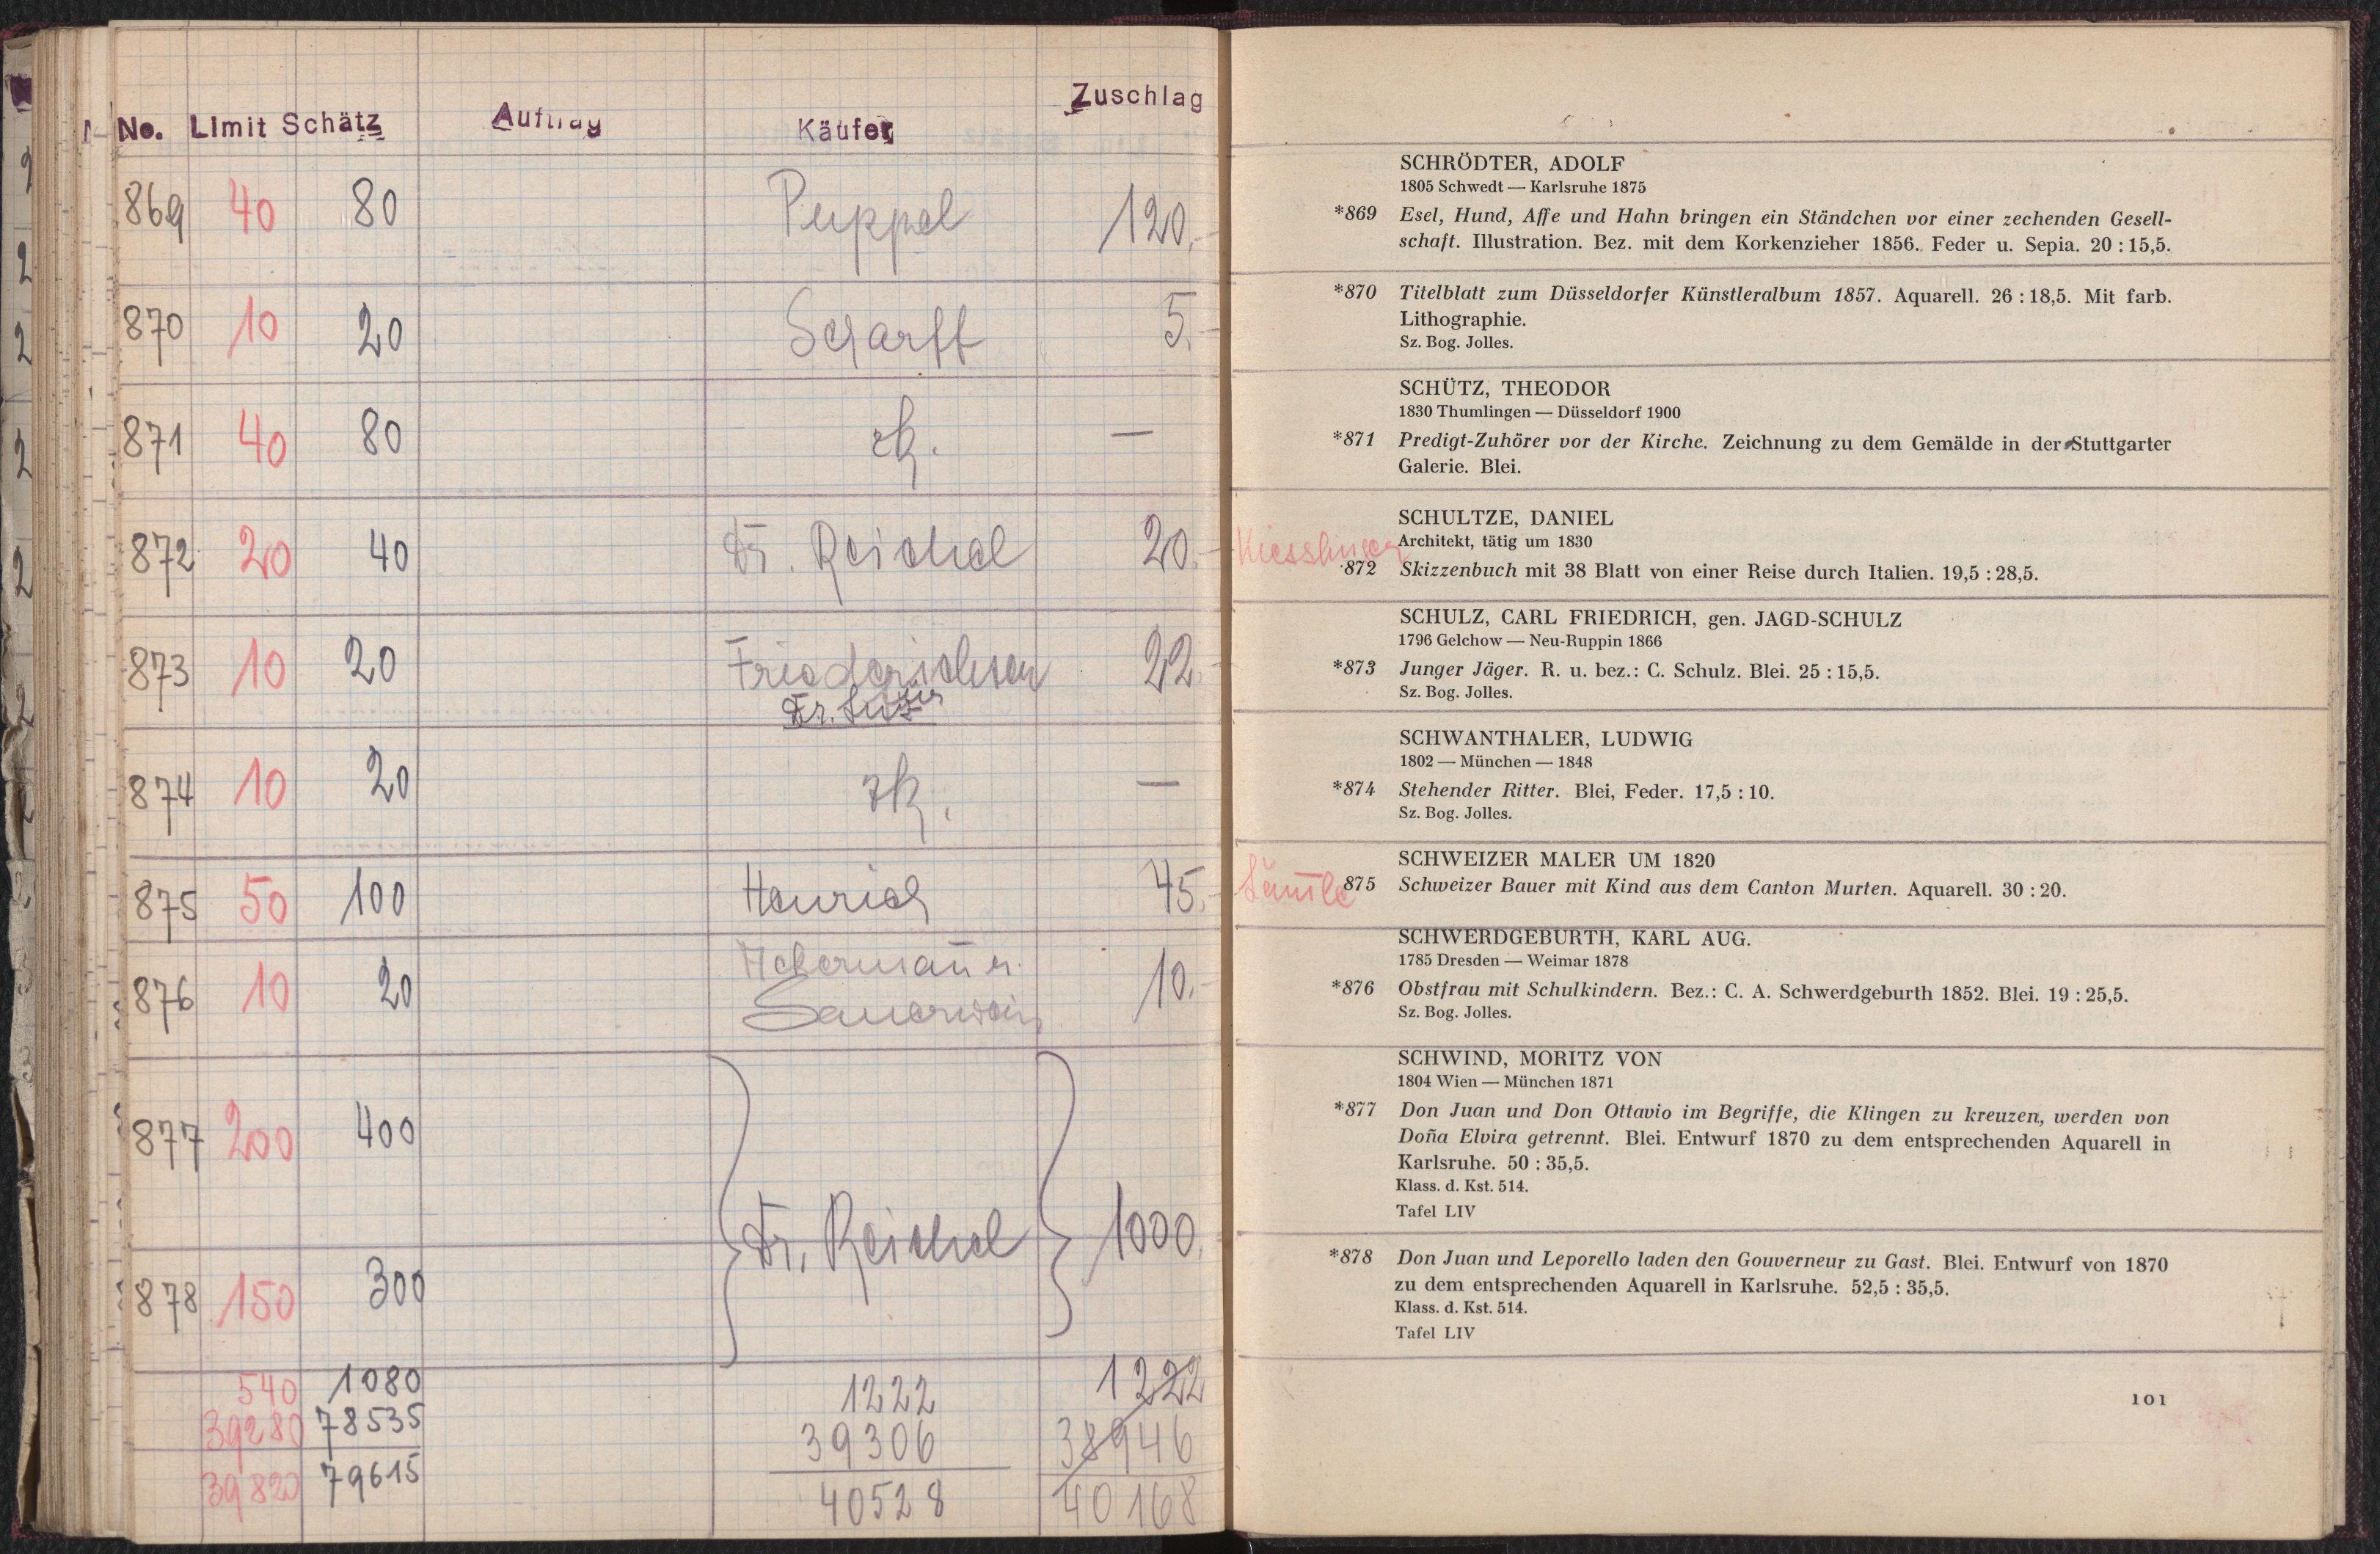 No. Limit Schätz Auftrag Käufer Zuschlag
869 40 80 Puppel 120.-
870 10 20 Scharff 5.-
871 40 80 zk. —
872 20 40 Dr. Reichel 20.-
873 10 20 Friederichsen 22.-
Dr.
874 10 20 zk. —
875 50 100 Henrich 45.-
876 10 20 Ackermann 10.-
Sauerwein
877 200 400
Dr. Reichel 1000.
878 150 300
540 1080 1222 1222
39280 78535 39306 38946
39820 79615 40528 40168
SCHRÖDTER, ADOLF
1805 Schwedt — Karlsruhe 1875
*869 Esel, Hund, Affe und Hahn bringen ein Ständchen vor einer zechenden Gesell-
schaft. Illustration. Bez. mit dem Korkenzieher 1856. Feder u. Sepia. 20 : 15,5.
*870 Titelblatt zum Düsseldorfer Künstleralbum 1857. Aquarell. 26 : 18,5. Mit farb.
Lithographie.
Sz. Bog. Jolles.
SCHÜTZ, THEODOR
1830 Thumlingen — Düsseldorf 1900
*871 Predigt-Zuhörer vor der Kirche. Zeichnung zu dem Gemälde in der Stuttgarter
Galerie. Blei.
SCHULTZE, DANIEL
Kiesslinger Architekt, tätig um 1830
872 Skizzenbuch mit 38 Blatt von einer Reise durch Italien. 19,5 : 28,5.
SCHULZ, CARL FRIEDRICH, gen. JAGD-SCHULZ
1796 Gelchow — Neu-Ruppin 1866
*873 Junger Jäger. R. u. bez.: C. Schulz. Blei. 25 : 15,5.
Sz. Bog. Jolles.
SCHWANTHALER, LUDWIG
1802 — München — 1848
*874 Stehender Ritter. Blei, Feder. 17,5 : 10.
Sz. Bog. Jolles.
SCHWEIZER MALER UM 1820
875 Schweizer Bauer mit Kind aus dem Canton Murten. Aquarell. 30 : 20.
SCHWERDGEBURTH, KARL AUG.
1785 Dresden — Weimar 1878
*876 Obstfrau mit Schulkindern. Bez.: C. A. Schwerdgeburth 1852. Blei. 19 : 25,5.
Sz. Bog. Jolles.
SCHWIND, MORITZ VON
1804 Wien — München 1871
*877 Don Juan und Don Ottavio im Begriffe, die Klingen zu kreuzen, werden von
Doña Elvira getrennt. Blei. Entwurf 1870 zu dem entsprechenden Aquarell in
Karlsruhe. 50 : 35,5.
Klass. d. Kst. 514.
Tafel LIV
*878 Don Juan und Leporello laden den Gouverneur zu Gast. Blei. Entwurf von 1870
zu dem entsprechenden Aquarell in Karlsruhe. 52,5 : 35,5.
Klass. d. Kst. 514.
Tafel LIV
101